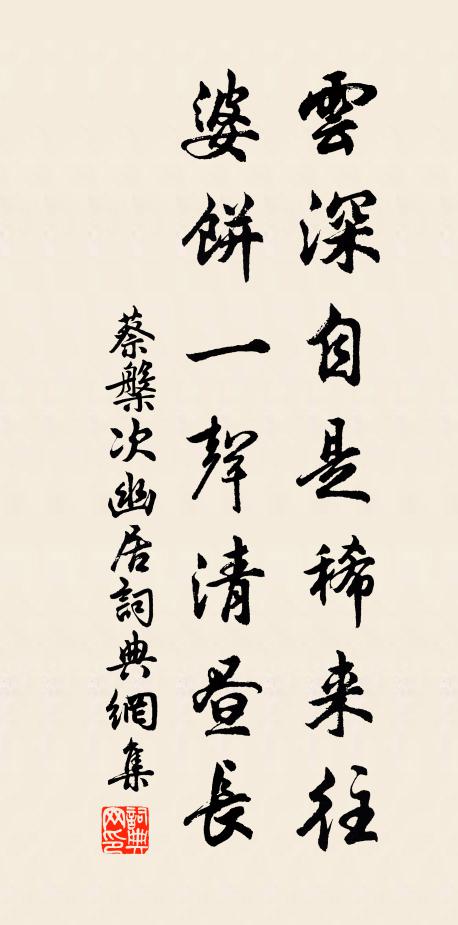 雲深自是稀来往
婆餅一聲清晝長
蔡槃次幽居詞典網集
詞典網印